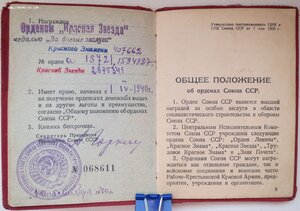 1. Награжден
Орденом „Красная Звезда"
медалью „За боевые заслуги"
Красного Знамени 407662
15721, 1594887
Красной Звезды 2875341
2. Имеет право, начиная с 1 IV 1940 г.
на получение орденских денежных выдач
и на другие льготы и преимущества,
согласно „Общему Положению об орденах
Союза ССР".
3. Книжка бессрочная.
Секретарь
№ 068611
Утверждено постановлением ЦИК и
СНК Союза ССР от 7 мая 1936 г.
ОБЩЕЕ ПОЛОЖЕНИЕ
об орденах Союза ССР.
1. Орден Союза ССР является высшей
наградой за особые заслуги в области
социалистического строительства и обороны
Союза ССР.
2. Центральным Исполнительным Комитетом
Союза ССР учреждены следующие
ордена Союза ССР: „Орден Ленина",
„Красное Знамя", „Красная Звезда", „Трудовое
Красное Знамя" и „Знак Почета".
3. Орденами Союза ССР могут награждаться
как отдельные граждане, так
и войсковые единицы и соединения
Рабоче-Крестьянской Красной Армии, предприятия,
учреждения и организации.
3